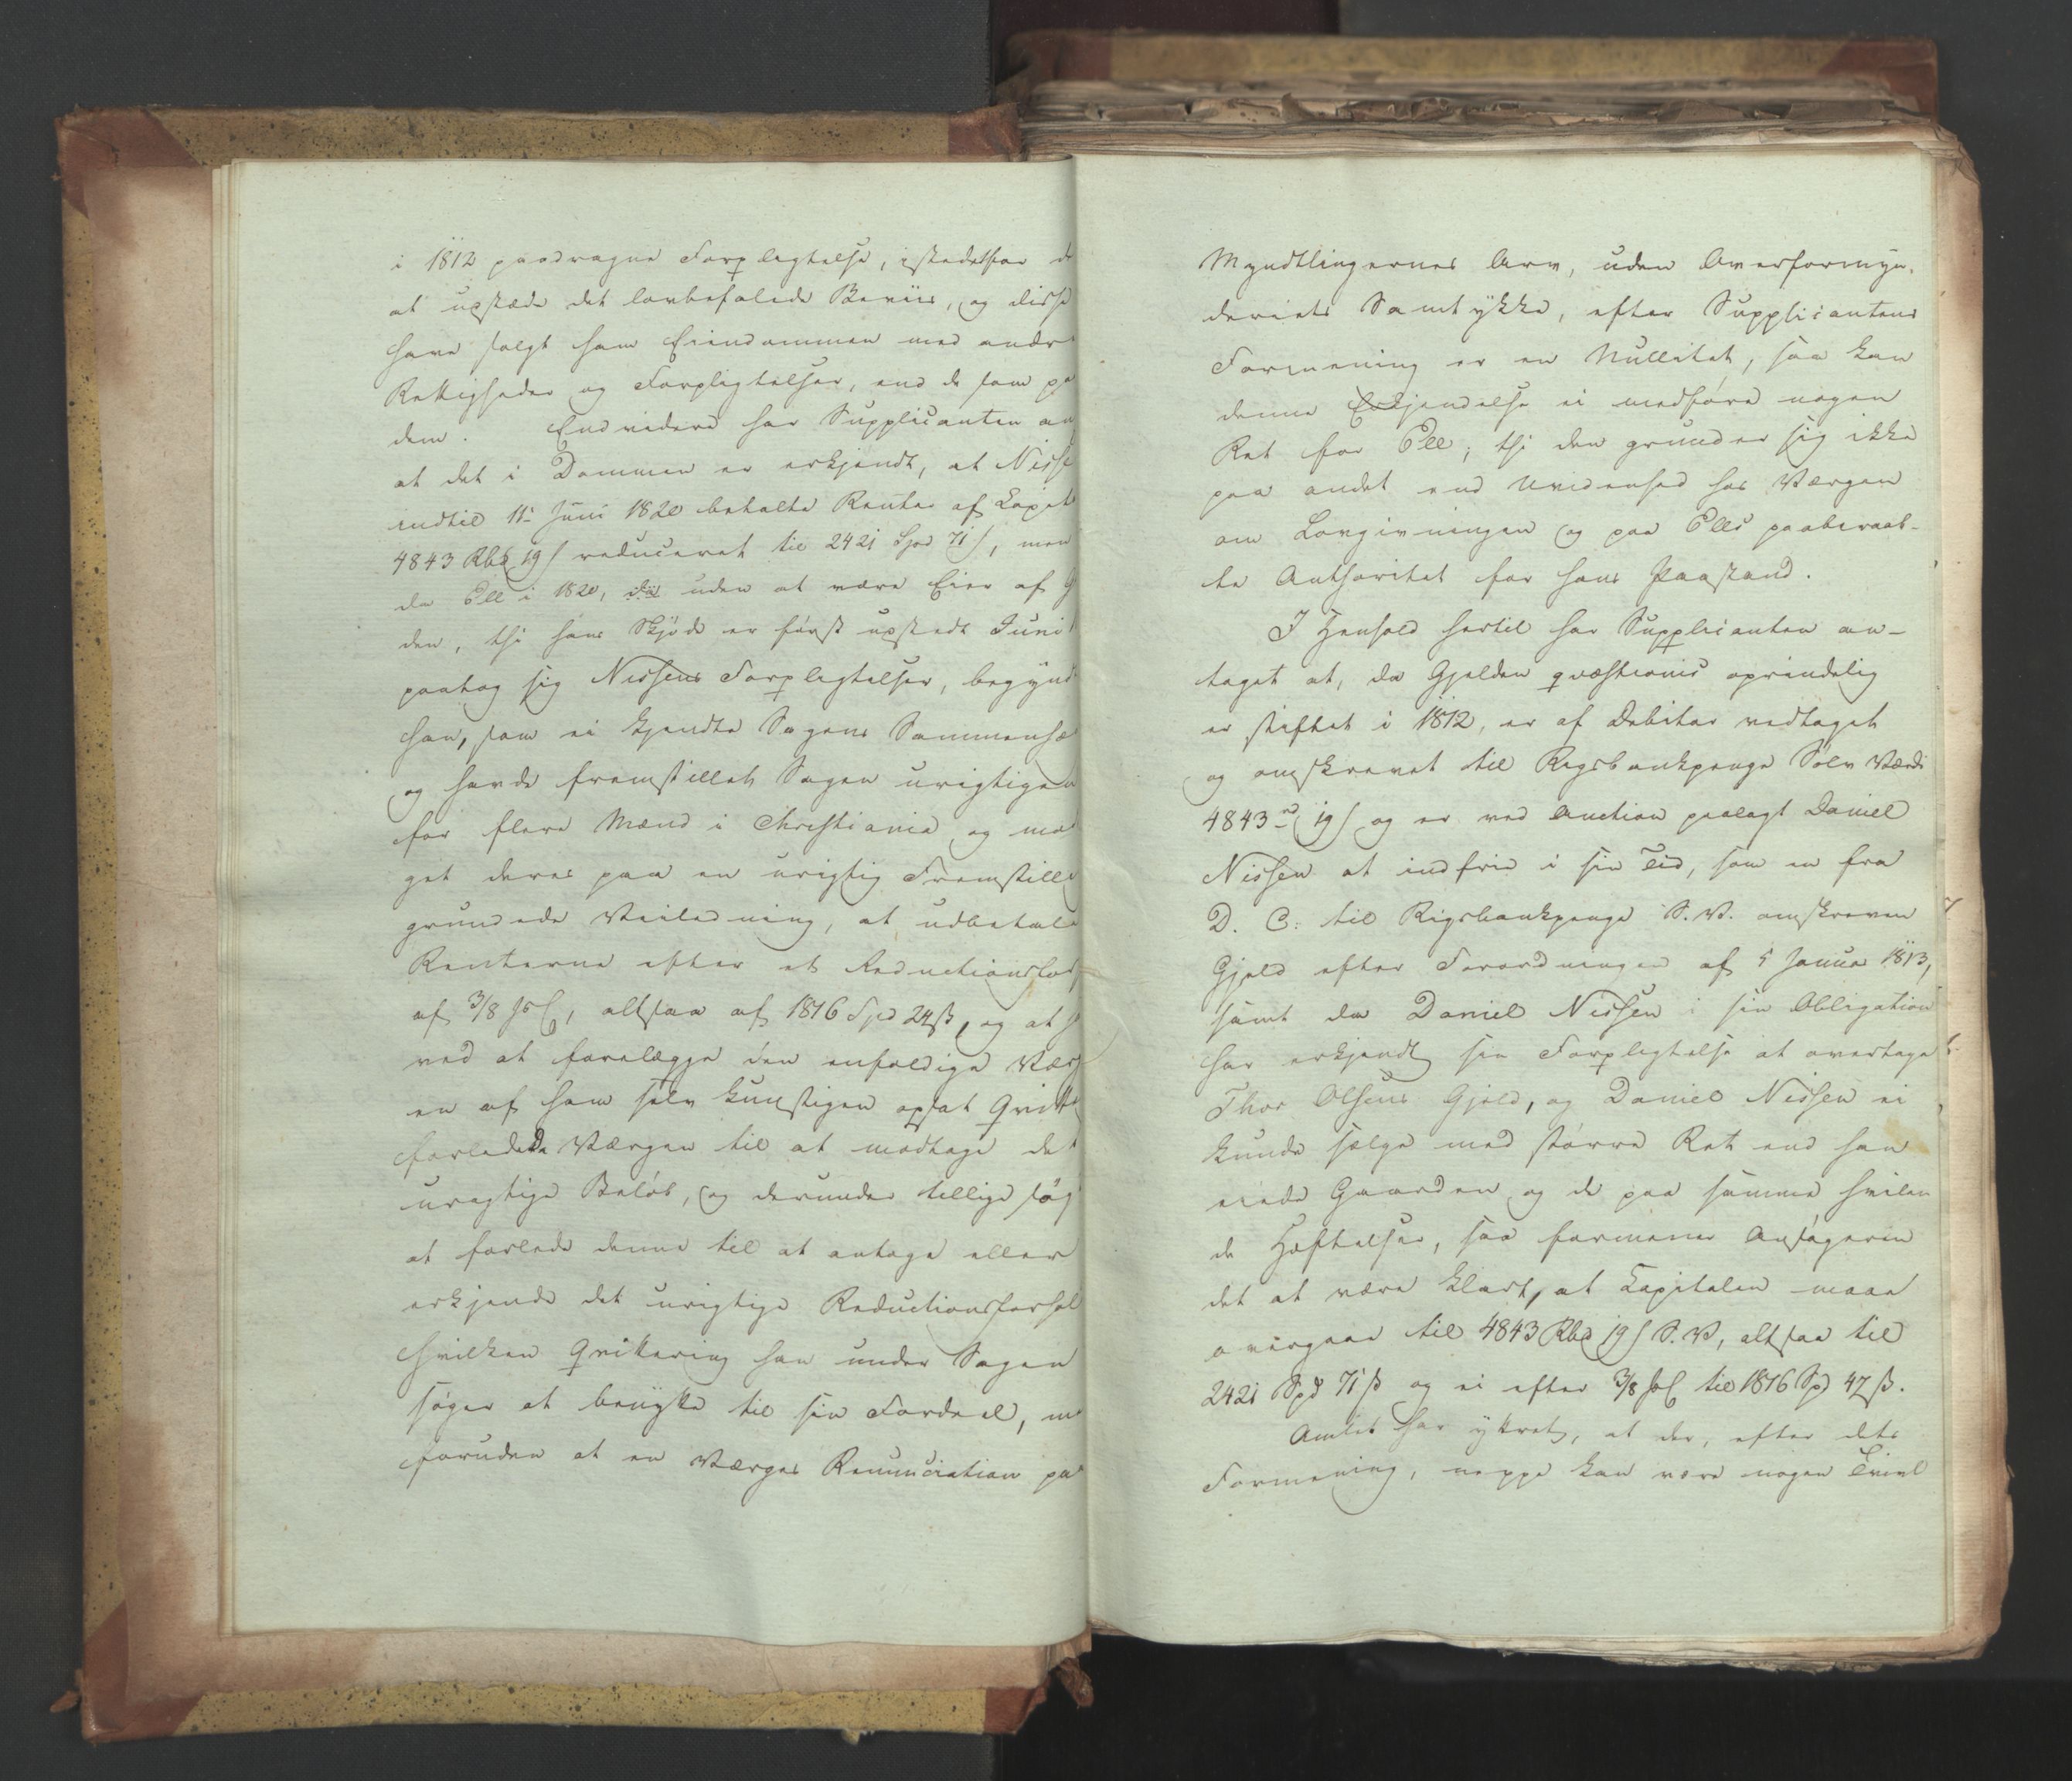 i 1812 paadragne Forplegtelse, istedetfor de
at upstæde det lovbefalede Beviis, og disse
have solgt ham Eiendommen med andre
Rettigheder og Forpligtelser, end de som pa
dem. Endvidere har Supplicanten an
at det i Dommen er erkjendt, at Nisse
indtil 11te Juni 1820 betalte Renter af Capit
4843 Rbd 19 s reduceret til 2421 Spd 71 s, men
da Ell i 1820, uden at være Eier af G
den, thi hans Skjøde er først upstedt Juni 1
paatog sig Nissens Forplegtelser, begyndt
han, som ei kjendte Sagens Sammenhæ
og havde fremstillet Sagen urigtigen
for flere Mænd i Christiania og mod
get deres paa en urigtig Fremstille
grundede Veiledning, at udbetale
Renterne efter et Reductionsfor
af 3/8, altsaa af 1816 Spd 24 ß, og at h
ved at forelægge den enfoldige Værg
en af ham selv kunstigen opsat Qvitt
forledede Værgen til at modtage det
uregtige Beløb, og derunder tellige søg
at forlede denne til at antage eller
erkjende det urigtige Reductionsforhol
hvilken Qvittering han under Sagen
søger at benytte til sin Fordeel, m
foruden at en Værges Renunciation pa
Myndtlingernes Arv, uden Overformyn-
deriets Samtykke, efter Supplicantens
Formening er en Nullitet, saa kan
denne Erkjendelse ei medføre nogen
Ret for Ell; thi den grunder sig ikke
paa andet end Uvidenhed hos Værgen
om Lovgivningen og paa Ells paaberaab-
te Authoritet for hans Paastand.
I Henhold hertil har Supplicanten an-
taget at, da Gjelden qvæstionis oprindelig
er stiftet i 1812, er af Debitor vedtaget
og omskrevet til Regsbankpenge Sølv Værdi
4843 rd 19 s og er ved Auction paalagt Daniel
Nissen at indfrie i sin Tid, som en fra
D. C: til Rigsbankpenge S. V. omskreven
Gjeld efter Forordningen af 5 Januar 1813,
samt da Daniel Nissen i sin Obligation
har erkjendt sin Forplegtelse at overtage
Thor Olsens Gjeld, og Daniel Nissen ei
kunde sælge med større Ret end han
eiede Gaarden og de paa samme hvilen
de Hæftelser, saa formener Ansøgeren
det at være klart, at Capitalen maae
overgaae til 4843 Rbd 19 s S. V, altsaa til
2421 Spd 71 ß og ei efter 3/8 til 1816 Spd 47 ß.
Amtet har yttret, at der, efter dets
Formening, neppe kan være nogen Tvivl